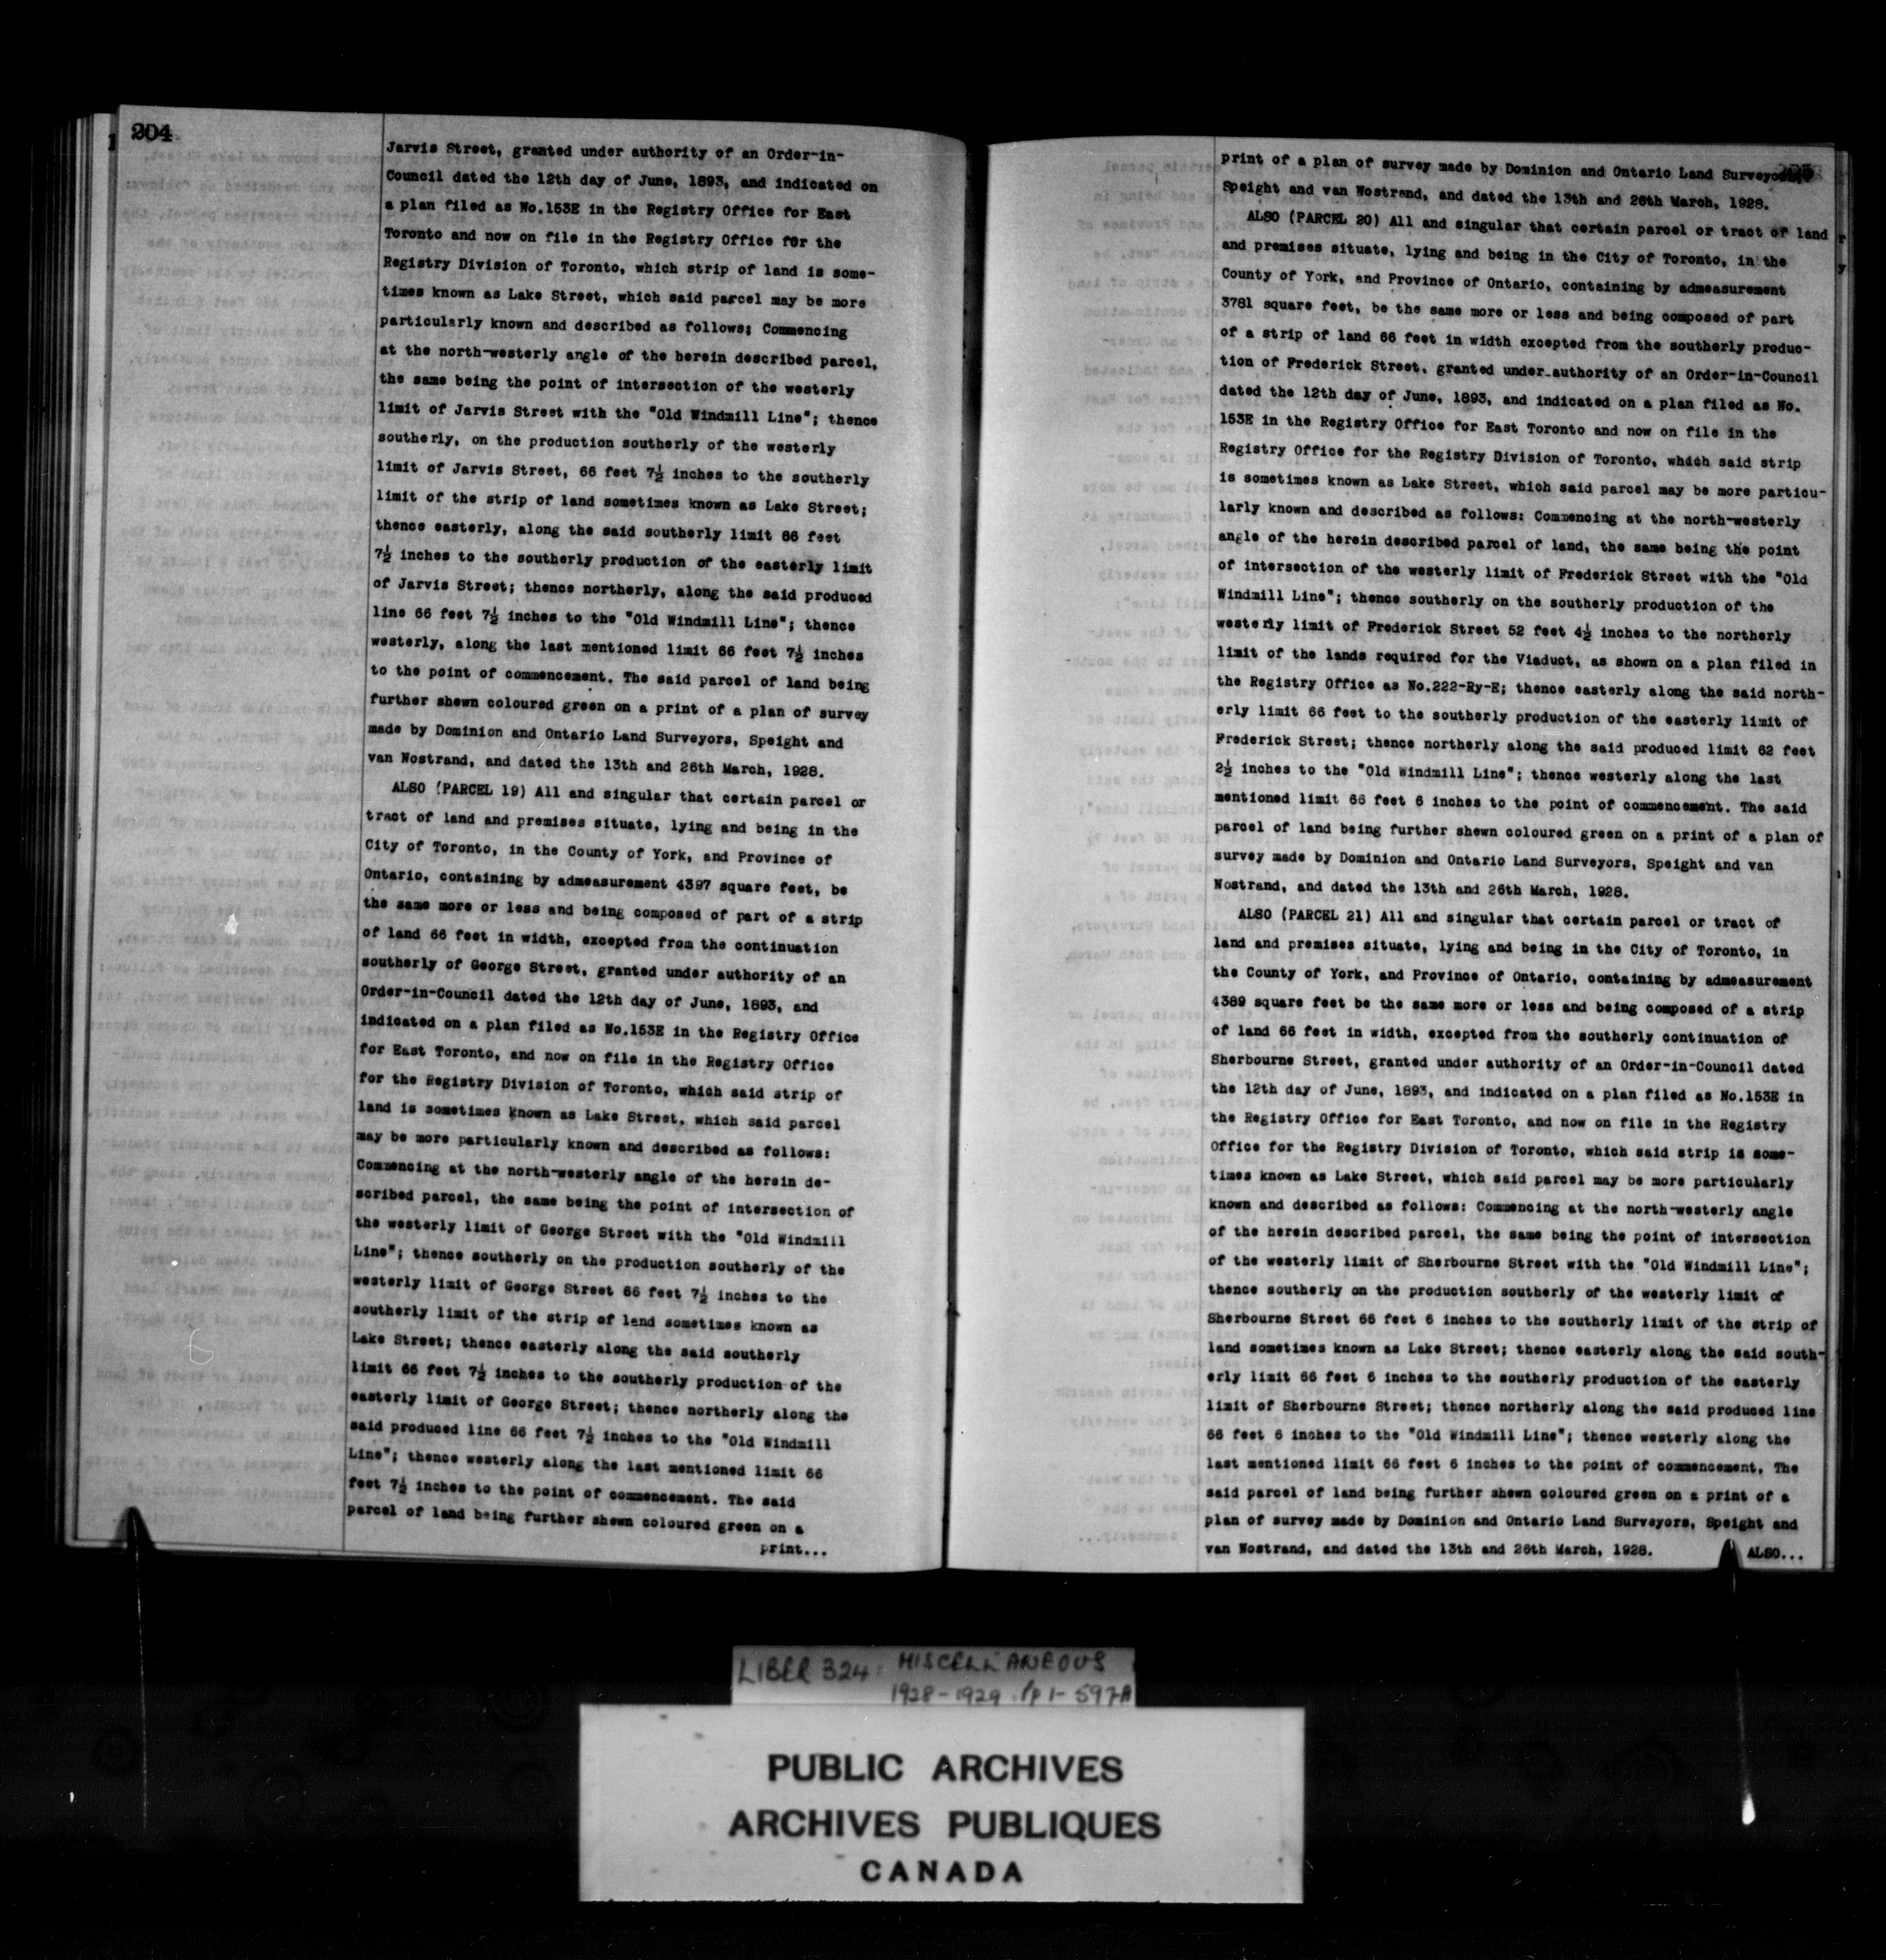 204
Jarvis Street, granted under authority of an Order-in-
Council dated the 12th day of June, 1893, and indicated on
a plan filed as No.153E in the Registry Office for East
Toronto and now on file in the Registry Office for the
Registry Division of Toronto, which strip of land is some-
times known as Lake Street, which said parcel may be more
particularly known and described as follows; Commencing
at the north-westerly angle of the herein described parcel,
the same being the point of intersection of the westerly
limit of Jarvis Street with the "Old Windmill Line"; thence
southerly, on the production southerly of the westerly
limit of Jarvis Street, 66 feet 7½ inches to the southerly
limit of the strip of land sometimes known as Lake Street;
thence easterly, along the said southerly limit 66 feet
7½ inches to the southerly production of the easterly limit
of Jarvis Street; thence northerly, along the said produced
line 66 feet 7½ inches to the "Old Windmill Line"; thence
westerly, along the last mentioned limit 66 feet 7½ inches
to the point of commencement. The said parcel of land being
further shewn coloured green on a print of a plan of survey
made by Dominion and Ontario Land Surveyors, Speight and
van Nostrand, and dated the 13th and 26th March, 1928.
ALSO (PARCEL 19) All and singular that certain parcel or
tract of land and premises situate, lying and being in the
City of Toronto, in the County of York, and Province of
Ontario, containing by admeasurement 4397 square feet, be
the same more or less and being composed of part of a strip
of land 66 feet in width, excepted from the continuation
southerly of George Street, granted under authority of an
Order-in-Council dated the 12th day of June, 1893, and
indicated on a plan filed as No.153E in the Registry Office
for East Toronto, and now on file in the Registry Office
for the Registry Division of Toronto, which said strip of
land is sometimes known as Lake Street, which said parcel
may be more particularly known and described as follows:
Commencing at the north-westerly angle of the herein de-
scribed parcel, the same being the point of intersection of
the westerly limit of George Street with the "Old Windmill
Line"; thence southerly on the production southerly of the
westerly limit of George Street 66 feet 7½ inches to the
southerly limit of the strip of land sometimes known as
Lake Street; thence easterly along the said southerly
limit 66 feet 7½ inches to the southerly production of the
easterly limit of George Street; thence northerly along the
said produced line 66 feet 7½ inches to the "Old Windmill
Line"; thence westerly along the last mentioned limit 66
feet 7½ inches to the point of commencement. The said
parcel of land being further shewn coloured green on a
print...
print of a plan of survey made by Dominion and Ontario Land Surveyors,
Speight and van Nostrand, and dated the 13th and 26th March, 1928.
ALSO (PARCEL 20) All and singular that certain parcel or tract of land
and premises situate, lying and being in the City of Toronto, in the
County of York, and Province of Ontario, containing by admeasurement
3781 square feet, be the same more or less and being composed of part
of a strip of land 66 feet in width excepted from the southerly produc-
tion of Frederick Street, granted under authority of an Order-in-Council
dated the 12th day of June, 1893, and indicated on a plan filed as No.
153E in the Registry Office for East Toronto and now on file in the
Registry Office for the Registry Division of Toronto, which said strip
is sometimes known as Lake Street, which said parcel may be more particu-
larly known and described as follows: Commencing at the north-westerly
angle of the herein described parcel of land, the same being the point
of intersection of the westerly limit of Frederick Street with the "Old
Windmill Line"; thence southerly on the southerly production of the
westerly limit of Frederick Street 52 feet 4½ inches to the northerly
limit of the lands required for the Viaduct, as shown on a plan filed in
the Registry Office as No.222-Ry-E; thence easterly along the said north-
erly limit 66 feet to the southerly production of the easterly limit of
Frederick Street; thence northerly along the said produced limit 62 feet
2½ inches to the "Old Windmill Line"; thence westerly along the last
mentioned limit 66 feet 6 inches to the point of commencement. The said
parcel of land being further shewn coloured green on a print of a plan of
survey made by Dominion and Ontario Land Surveyors, Speight and van
Nostrand, and dated the 13th and 26th March, 1928.
ALSO (PARCEL 21) All and singular that certain parcel or tract of
land and premises situate, lying and being in the City of Toronto, in
the County of York, and Province of Ontario, containing by admeasurement
4389 square feet be the same more or less and being composed of a strip
of land 66 feet in width, excepted from the southerly continuation of
Sherbourne Street, granted under authority of an Order-in-Council dated
the 12th day of June, 1893, and indicated on a plan filed as No.153E in
the Registry Office for East Toronto, and now on file in the Registry
Office for the Registry Division of Toronto, which said strip is some-
times known as Lake Street, which said parcel may be more particularly
known and described as follows: Commencing at the north-westerly angle
of the herein described parcel, the same being the point of intersection
of the westerly limit of Sherbourne Street with the "Old Windmill Line";
thence southerly on the production southerly of the westerly limit of
Sherbourne Street 66 feet 6 inches to the southerly limit of the strip of
land sometimes known as Lake Street; thence easterly along the said south-
erly limit 66 feet 6 inches to the southerly production of the easterly
limit of Sherbourne Street; thence northerly along the said produced line
66 feet 6 inches to the "Old Windmill Line"; thence westerly along the
last mentioned limit 66 feet 6 inches to the point of commencement. The
said parcel of land being further shewn coloured green on a print of a
plan of survey made by Dominion and Ontario Land Surveyors, Speight and
van Nostrand, and dated the 13th and 26th March, 1928.
ALSO...
LIBER 324: MISCELLANEOUS
1928-1929. Pp 1-597A
PUBLIC ARCHIVES
ARCHIVES PUBLIQUES
CANADA